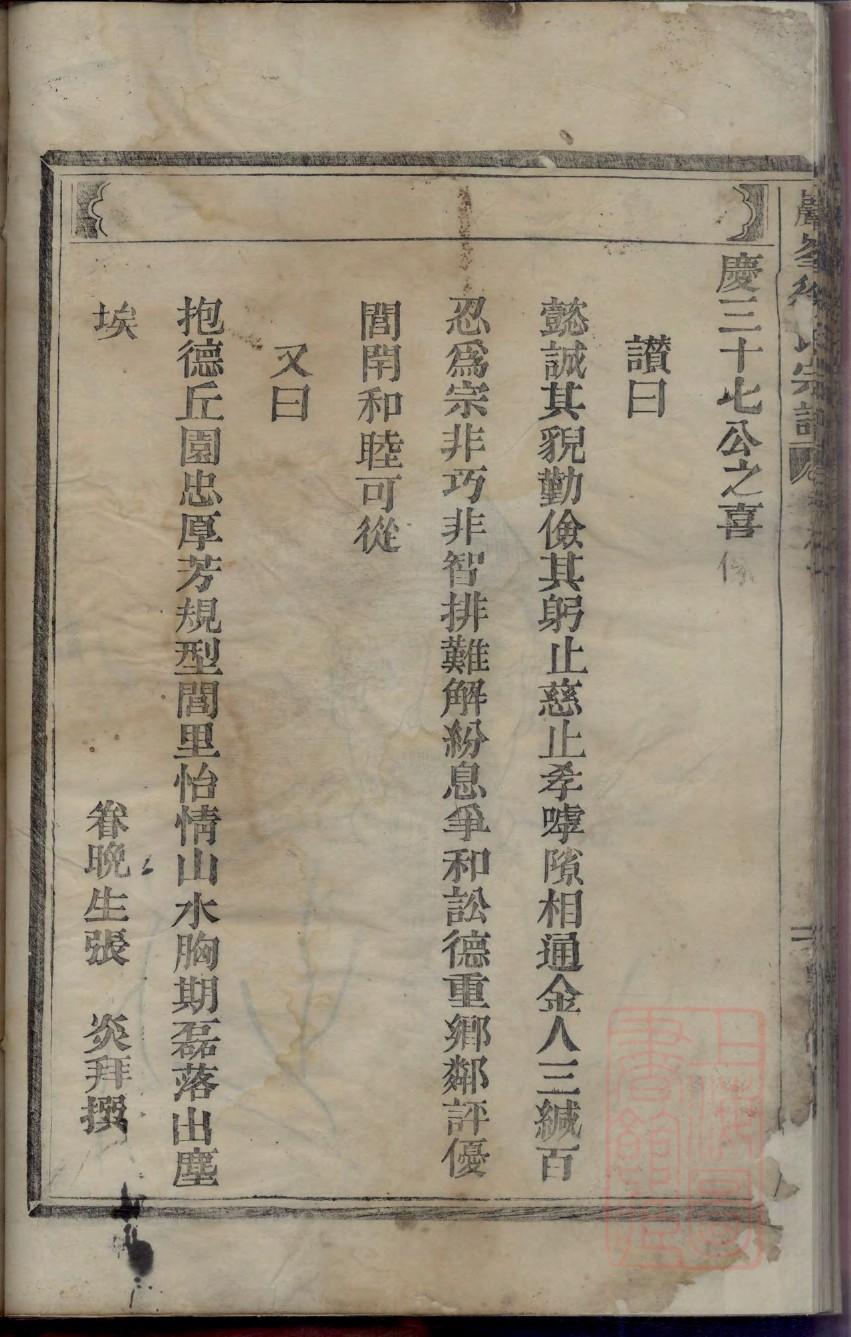 慶三十七公之喜像
讃曰
懿誠其貌勤儉其躬止慈止孝嘑隙相通金人三緘百
忍爲宗非巧非智排難解紛息爭和訟德重鄕鄰評優
閭閈和睦可從
又曰
抱德丘園忠厚芳規型閭里怡情山水胸期磊落出塵
埃
眷晚生張 炎拜撰
氏宗譜
上海圖書館藏